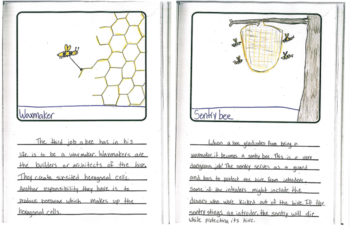 Waxmaker
The third job a bee has in his
life is to be a waxmaker. Waxmakers are
the builders or architects of the hive.
They create six-sided hexagonal cells.
Another responsibility they have is to
produce beeswax which makes up the
hexagonal cells.
Sentry bee
When a bee graduates from being a
waxmaker it becomes a sentry bee. This is a very
dangerous job! The sentry serves as a guard
and has to protect our hive from intruders.
Some of the intruders might include the
drones who were kicked out of the hive. If the
sentry stings an intruder, the sentry will die
while protecting its hive.